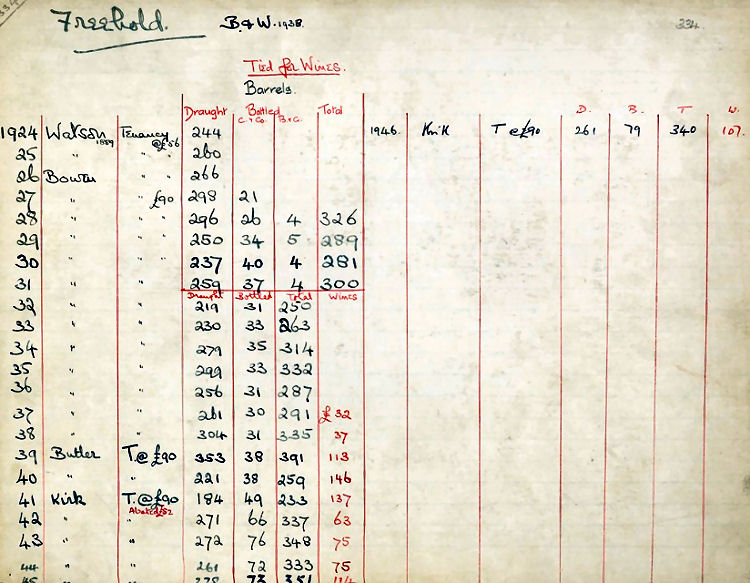 334
Freehold. B & W. 1938. 334.
Tied for Wines.
Barrels.
Draught Bottled Total D. B. T W.
C. & Co. B. & G.
1924 Watson 1889 Tenancy @ £56 244 1946. Kirk T @ £90 261 79 340 107.
25 " " " 260
26 Bowen " " 266
27 " £90 298 21
28 " " " 296 26 4 326
29 " " " 250 34 5 289
30 " " " 237 40 4 281
31 " " 259 37 4 300
Draught Bottled Total Wines
32 " " 219 31 250
33 " " 230 33 263
34 " " 279 35 314
35 " " 299 33 332
36 " " 256 31 287
37 " " 261 30 291 £32
38 " " 304 31 335 37
39 Butler T @ £90 353 38 391 113
40 " " 221 38 259 146
41 Kirk T. @ £90 184 49 233 137
Abated £52
42 " " 271 66 337 63
43 " " 272 76 348 75
44 " " 261 72 333 75
45 " " 278 73 351 114